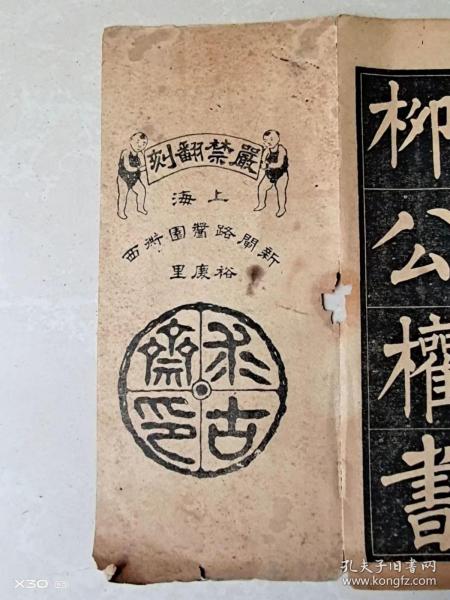 柳公權書
嚴禁翻刻
上海
新閘路醬園衖西
裕慶里
求古齋印
X30
孔夫子旧书网
www.kongfz.com